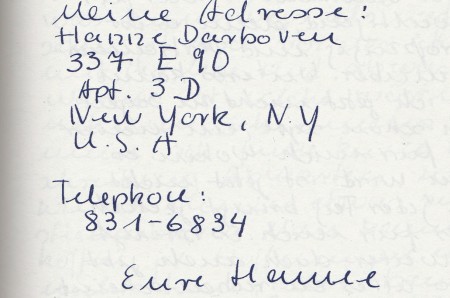 Meine Adresse:
Hanne Darboven
337 E 90
Apt. 3 D
New York, N.Y
U.S.A
Telephon:
831-6834
Eure Hanne